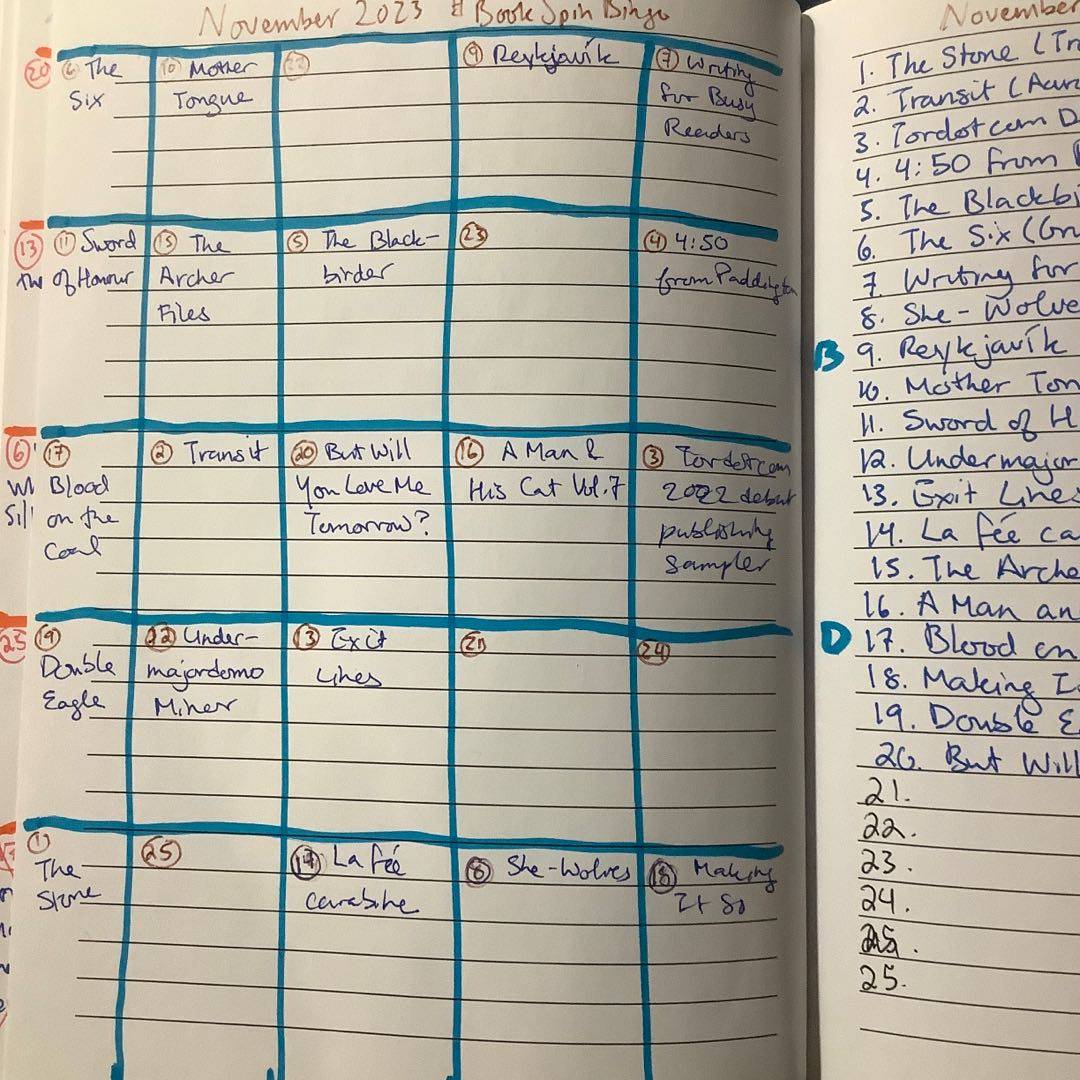 November 2023 #BookSpinBingo
⑥ The
Six
⑩ Mother
Tongue
㉒
⑨ Reykjavík
⑦ Writing
for Busy
Readers
⑪ Sword
of Honour
⑮ The
Archer
Files
⑤ The Black-
birder
㉓
④ 4:50
from Paddington
⑰
Blood
on the
Coal
② Transit
⑳ But Will
You Love Me
Tomorrow?
⑯ A Man &
His Cat Vol. 7
③ Tordotcom
2022 debut
publishing
sampler
⑲
Double
Eagle
㉒ Under-
majordomo
Minor
⑬ Exit
Lines
㉑
㉔
①
The
Stone
㉕
⑭ La fée
carabine
⑧ She-Wolves
⑱ Making
It So
⑳
⑬
The
⑥
November
1. The Stone (Tr
2. Transit (
3. Tordotcom D
4. 4:50 from
5. The Blackbi
6. The Six (
7. Writing for
8. She-Wolve
B 9. Reykjavík
10. Mother Ton
11. Sword of H
12. Undermajor
13. Exit Lines
14. La fée ca
15. The Arche
16. A Man an
D 17. Blood on
18. Making I
19. Double E
20. But Will
21.
22.
23.
24.
25.